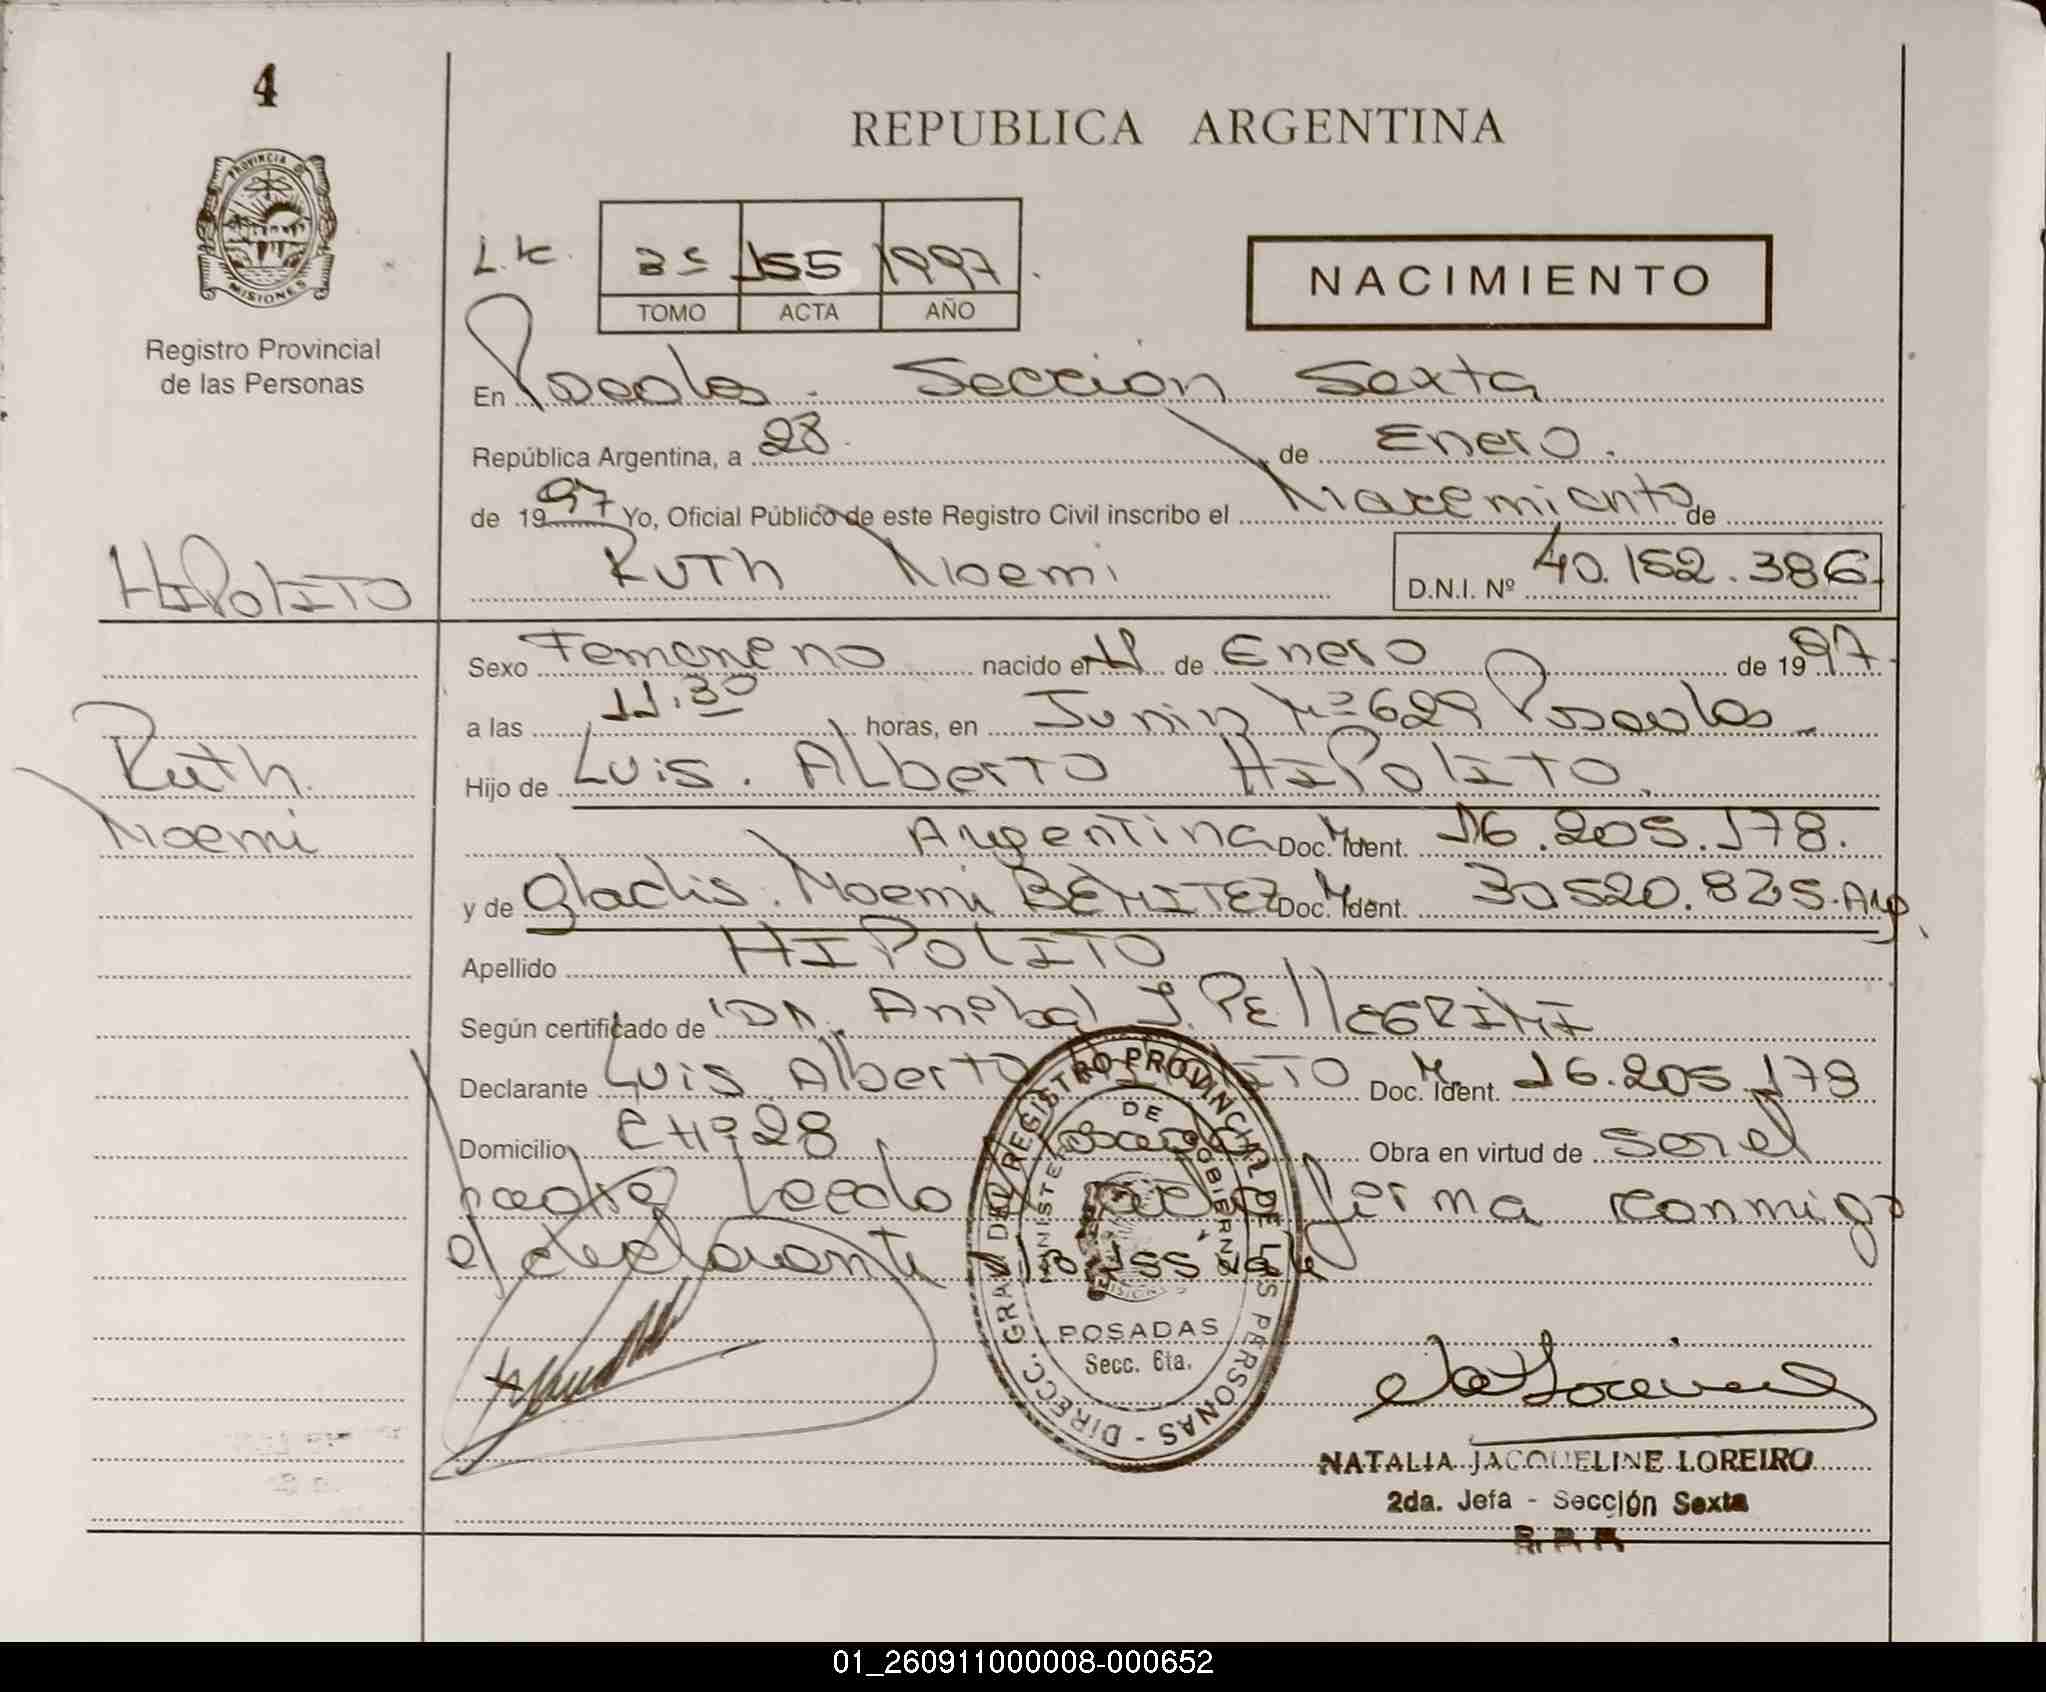 4
REPUBLICA ARGENTINA
PROVINCIA DE
MISIONES
155 1997
TOMO ACTA AÑO
NACIMIENTO
Registro Provincial
de las Personas
En Posadas - Sección Sexta
República Argentina, a 28 de Enero.
de 1997 Yo, Oficial Público de este Registro Civil inscribo el Nacimiento de
HIPOLITO
Ruth Noemi D.N.I. Nº 40.152.386
Sexo Femenino nacido el 11 de Enero de 1997
a las 11.30 horas, en Junin Nº 629 Posadas
Ruth
Noemi
Hijo de Luis Alberto HIPOLITO
Argentina Doc. Ident. 16.205.178.
y de Gladis Noemi BENITEZ Doc. Ident. 30520.825. Arg.
Apellido HIPOLITO
Según certificado de Dr. Anibal J. PELLEGRINI
Declarante Luis Alberto Doc. Ident. 16.205.178
Domicilio 28 Obra en virtud de ser el
padre Leedo firma conmigo
el declarante
155 vale
DIRECC. GRAL. DEL REGISTRO PROVINCIAL DE LAS PERSONAS
MINISTERIO DE GOBIERNO
MISIONES
POSADAS
Secc. 6ta.
NATALIA JACQUELINE LOREIRO
2da. Jefa - Sección Sexta
01_260911000008-000652